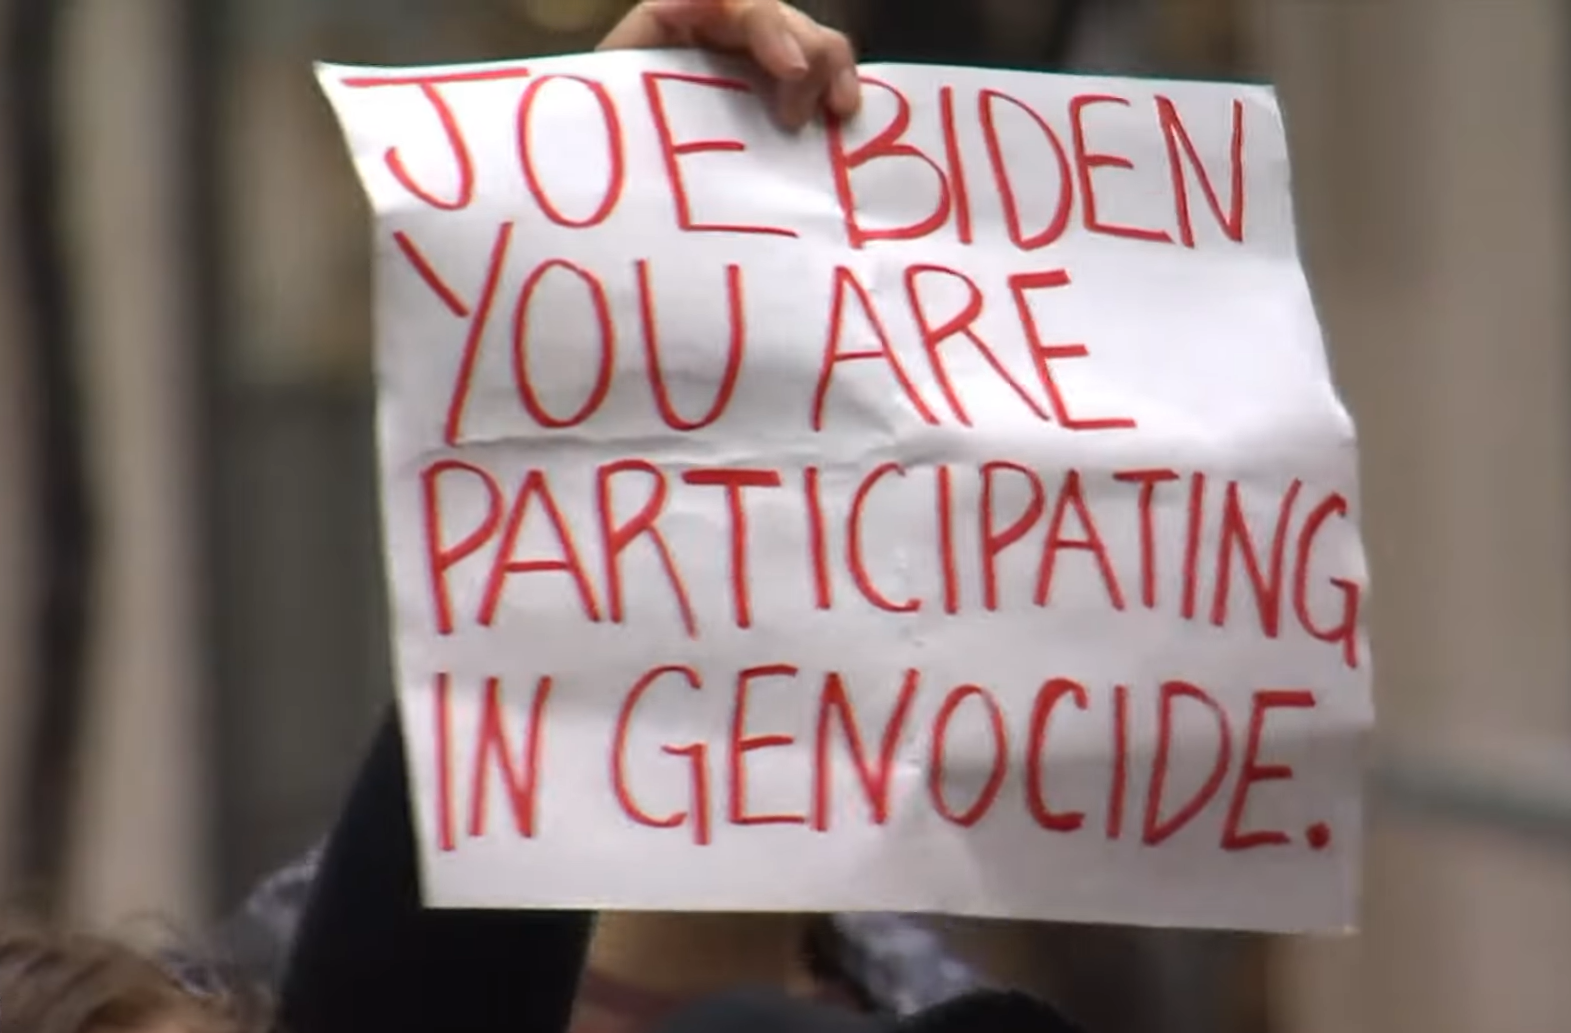 JOE BIDEN
YOU ARE
PARTICIPATING
IN GENOCIDE.